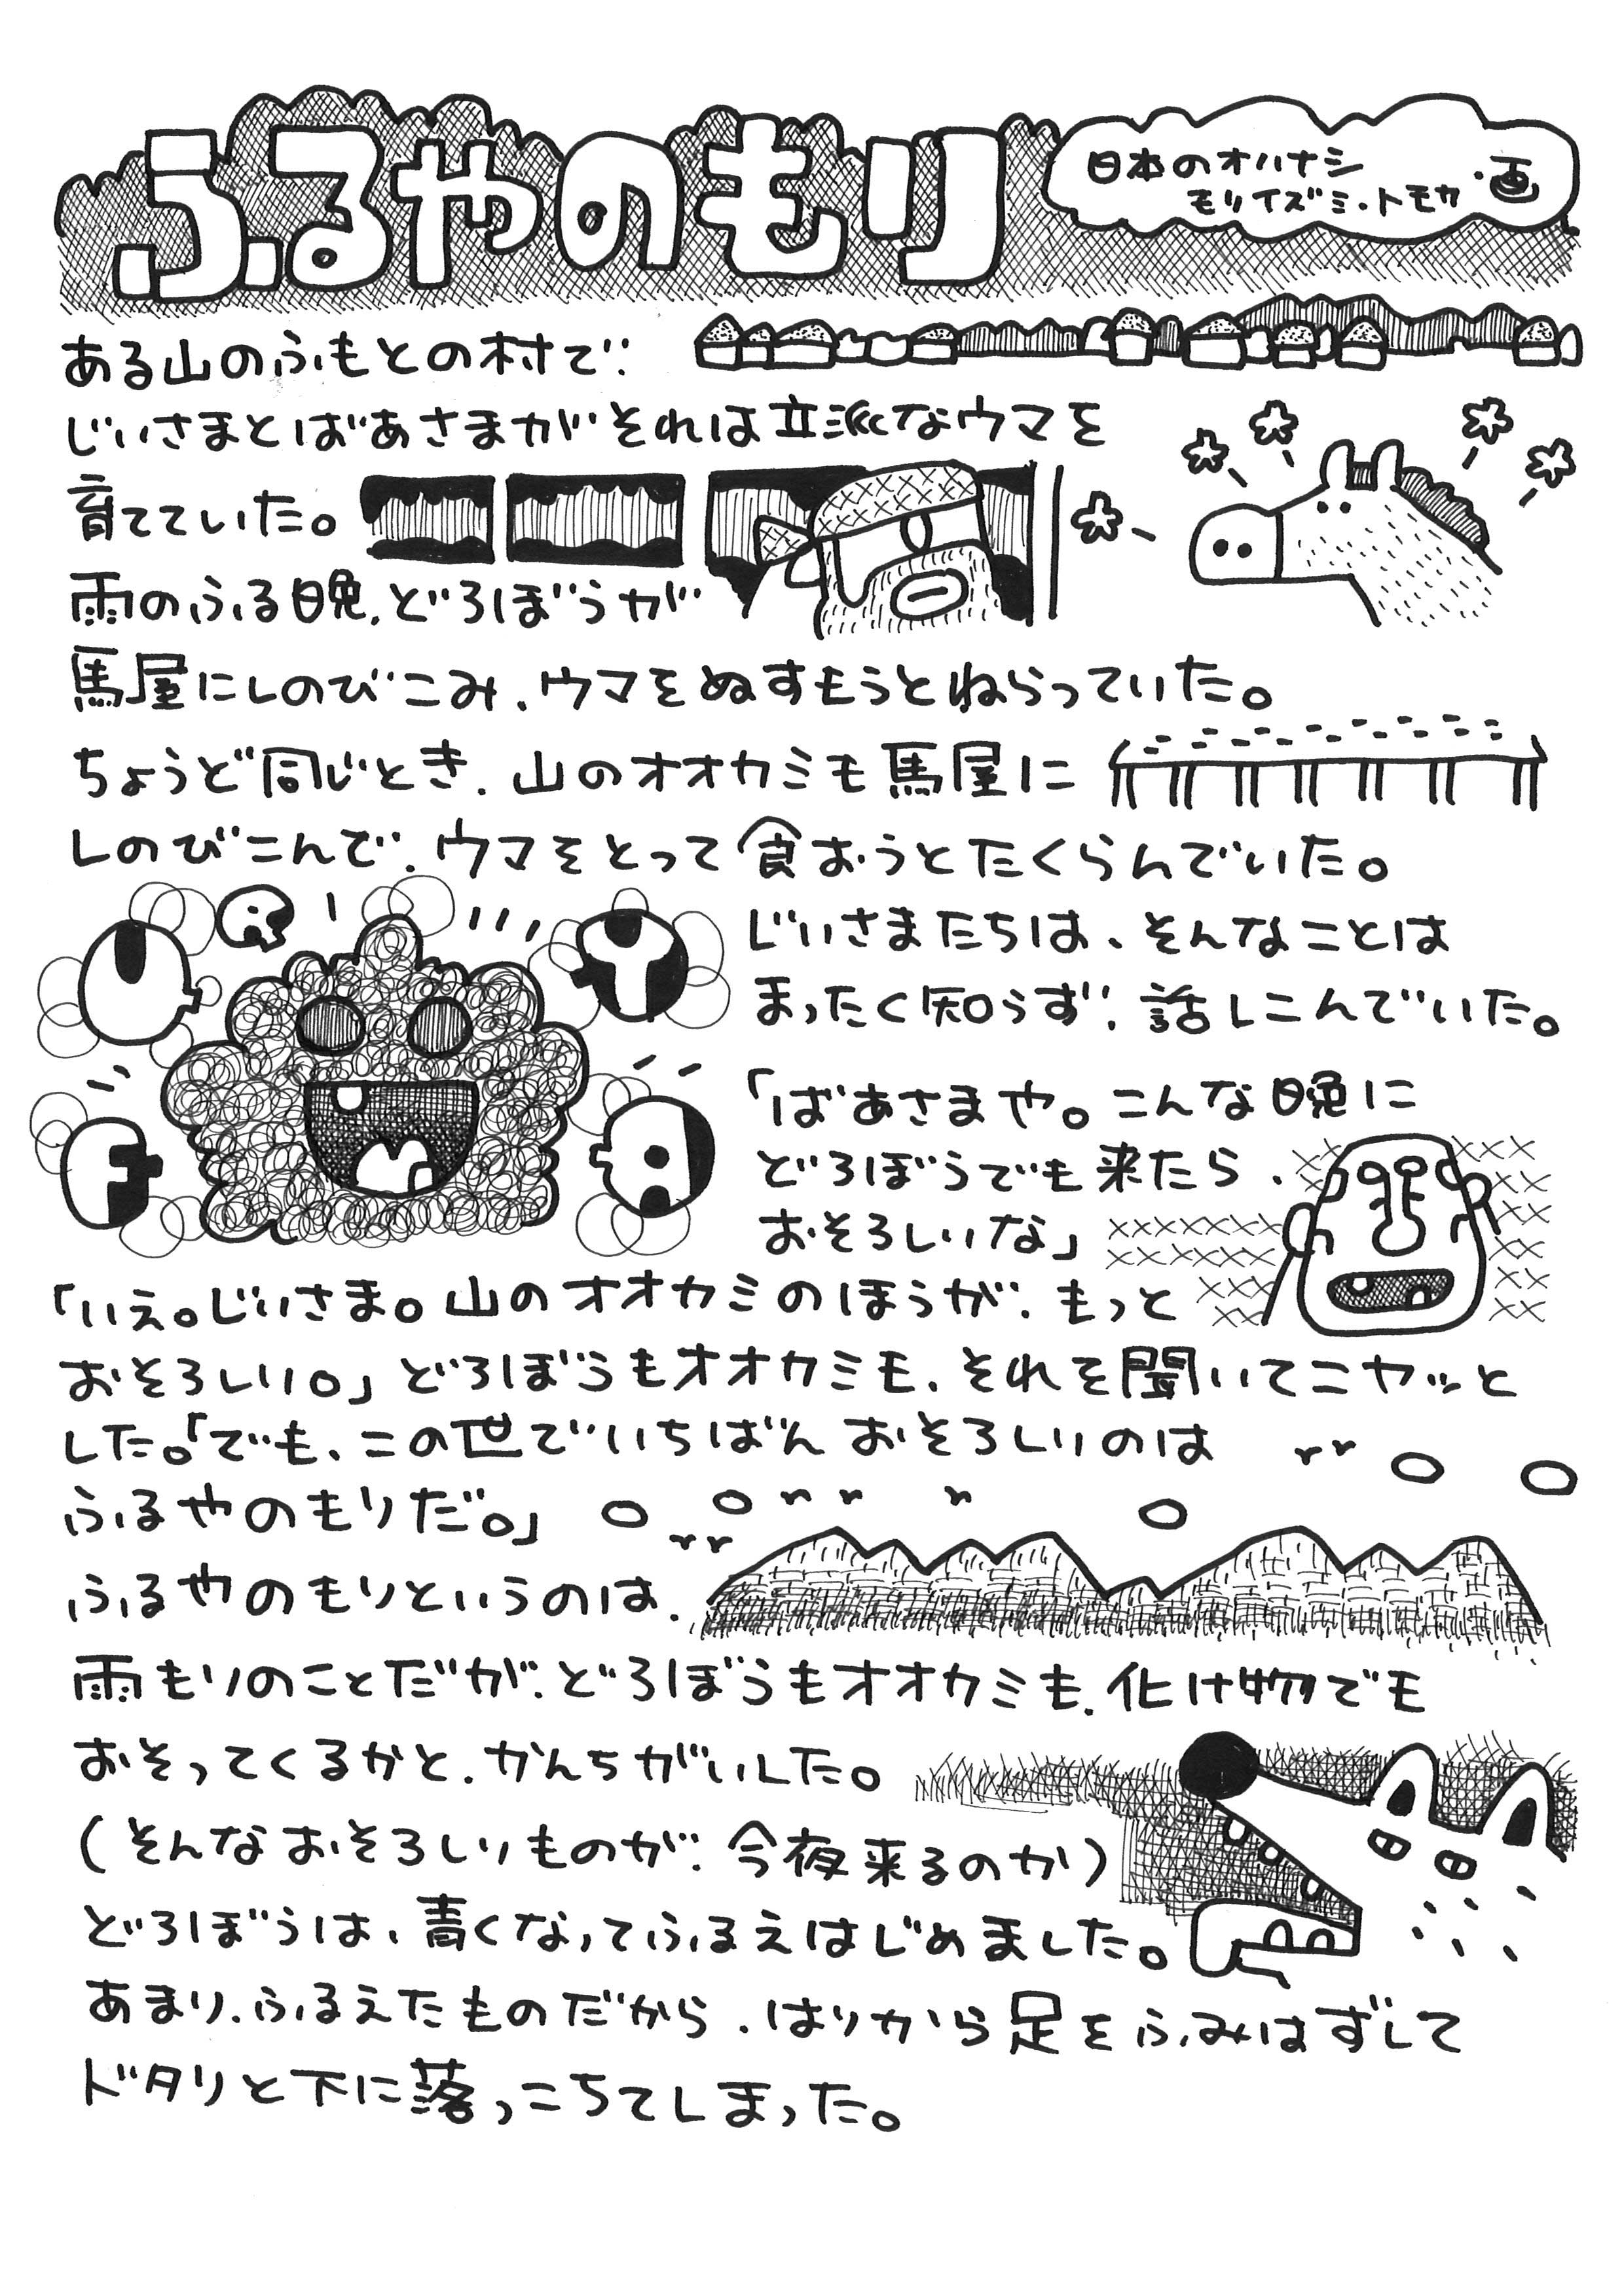 ふるやのもり
日本のオハナシ
モリイズミ・トモカ・画
ある山のふもとの村で、
じいさまとばあさまがそれは立派なウマを
育てていた。
雨のふる晩、どろぼうが
馬屋にしのびこみ、ウマをぬすもうとねらっていた。
ちょうど同じとき、山のオオカミも馬屋に
しのびこんで、ウマをとって食おうとたくらんでいた。
じいさまたちは、そんなことは
まったく知らず、話しこんでいた。
「ばあさまや。こんな晩に
どろぼうでも来たら、
おそろしいな」
「いえ。じいさま。山のオオカミのほうが、もっと
おそろしい。」どろぼうもオオカミも、それを聞いてニヤッと
した。「でも、この世でいちばんおそろしいのは
ふるやのもりだ。」
ふるやのもりというのは、
雨もりのことだが、どろぼうもオオカミも、化け物でも
おそってくるかと、かんちがいした。
（そんなおそろしいものが、今夜来るのか）
どろぼうは、青くなってふるえはじめました。
あまり、ふるえたものだから、はりから足をふみはずして
ドタリと下に落っこちてしまった。